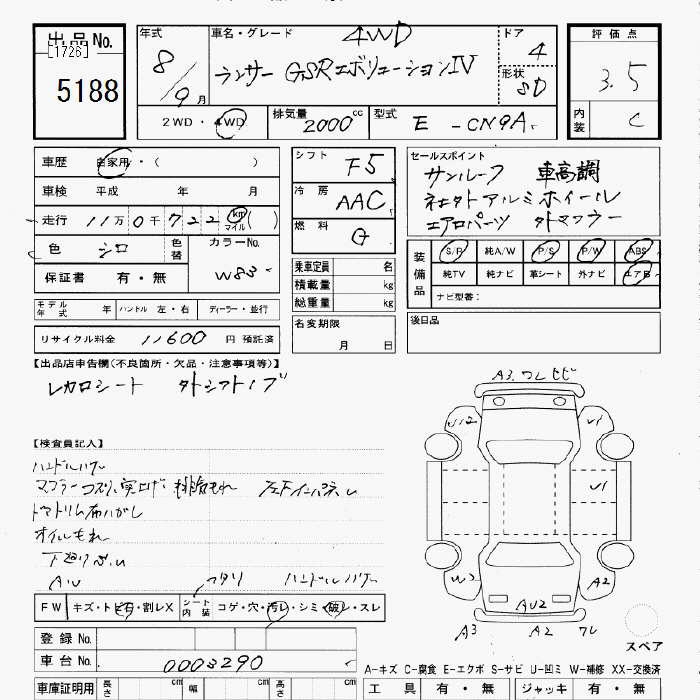 出品No.
[1726]
5188
年式
8/9月
車名・グレード
4WD
ランサー GSRエボリューションⅣ
ドア
4
形状
SD
評価点
3.5
内装
C
2WD・4WD
排気量
2000cc
型式
E-CN9A
車歴 自家用・( )
車検 平成 年 月
走行 11万0千722 km マイル ( )
色 シロ
色替
カラーNo.
W83
保証書 有・無
シフト F5
冷房 AAC
燃料 G
セールスポイント
サンルーフ 車高調
社外アルミホイール
エアロパーツ 外マフラー
装備品
S/R 純A/W P/S P/W ABS
純TV 純ナビ 革シート 外ナビ エアB
ナビ型番:
乗車定員 名
積載量 kg
総重量 kg
モデル年式 年 ハンドル 左・右 ディーラー・並行
リサイクル料金 11600 円 預託済
名変期限
月 日
後日品
【出品店申告欄(不良箇所・欠品・注意事項等)】
レカロシート 外シフトノブ
【検査員記入】
ハンドルハゲ
マフラーコスリ、突上げ 排気もれ
ドアトリム布ハガレ
オイルもれ
下廻りサビ
AU
ヘタリ ハンドルハゲ
FW キズ・トビ石・割レX
シート内装 コゲ・穴・汚レ・シミ・破レ・スレ
登録No.
車台No. 0003290
車庫証明用 長さ cm 幅 cm 高さ cm
A3. ワレ ヒビ
U12
U1
U1
W2
A2
AU2
A3
A2 ワレ
スペア
A−キズ C−腐食 E−エクボ S−サビ U−凹ミ W−補修 XX−交換済
工具 有・無 ジャッキ 有・無